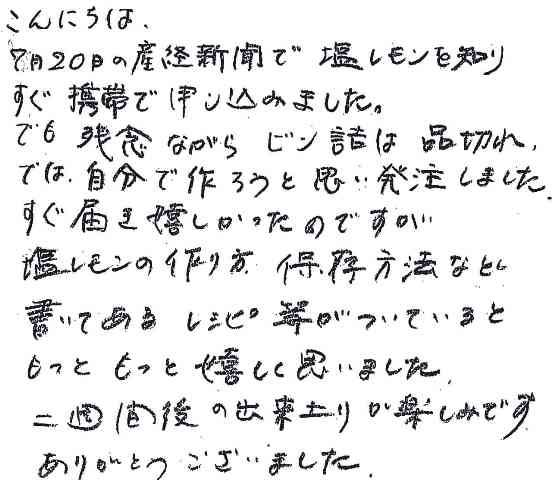 こんにちは、
7月20日の産経新聞で 塩レモンを知り
すぐ 携帯で申し込みました。
でも 残念ながら ビン詰は 品切れ、
では、自分で作ろうと思い発注しました。
すぐ届き嬉しかったのですが
塩レモンの作り方、保存方法など
書いてある レシピ等がついていると
もっと もっと嬉しく思いました。
二週間後の出来上りが楽しみです
ありがとうございました。